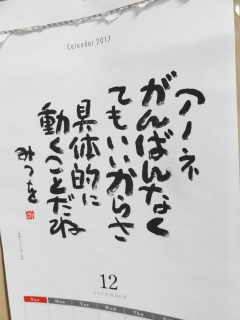 Calendar 2017
アノネ
がんばんなく
てもいいからさ
具体的に
動くことだね
みつを
12
DECEMBER
Sun Mon Tue Wed Thu